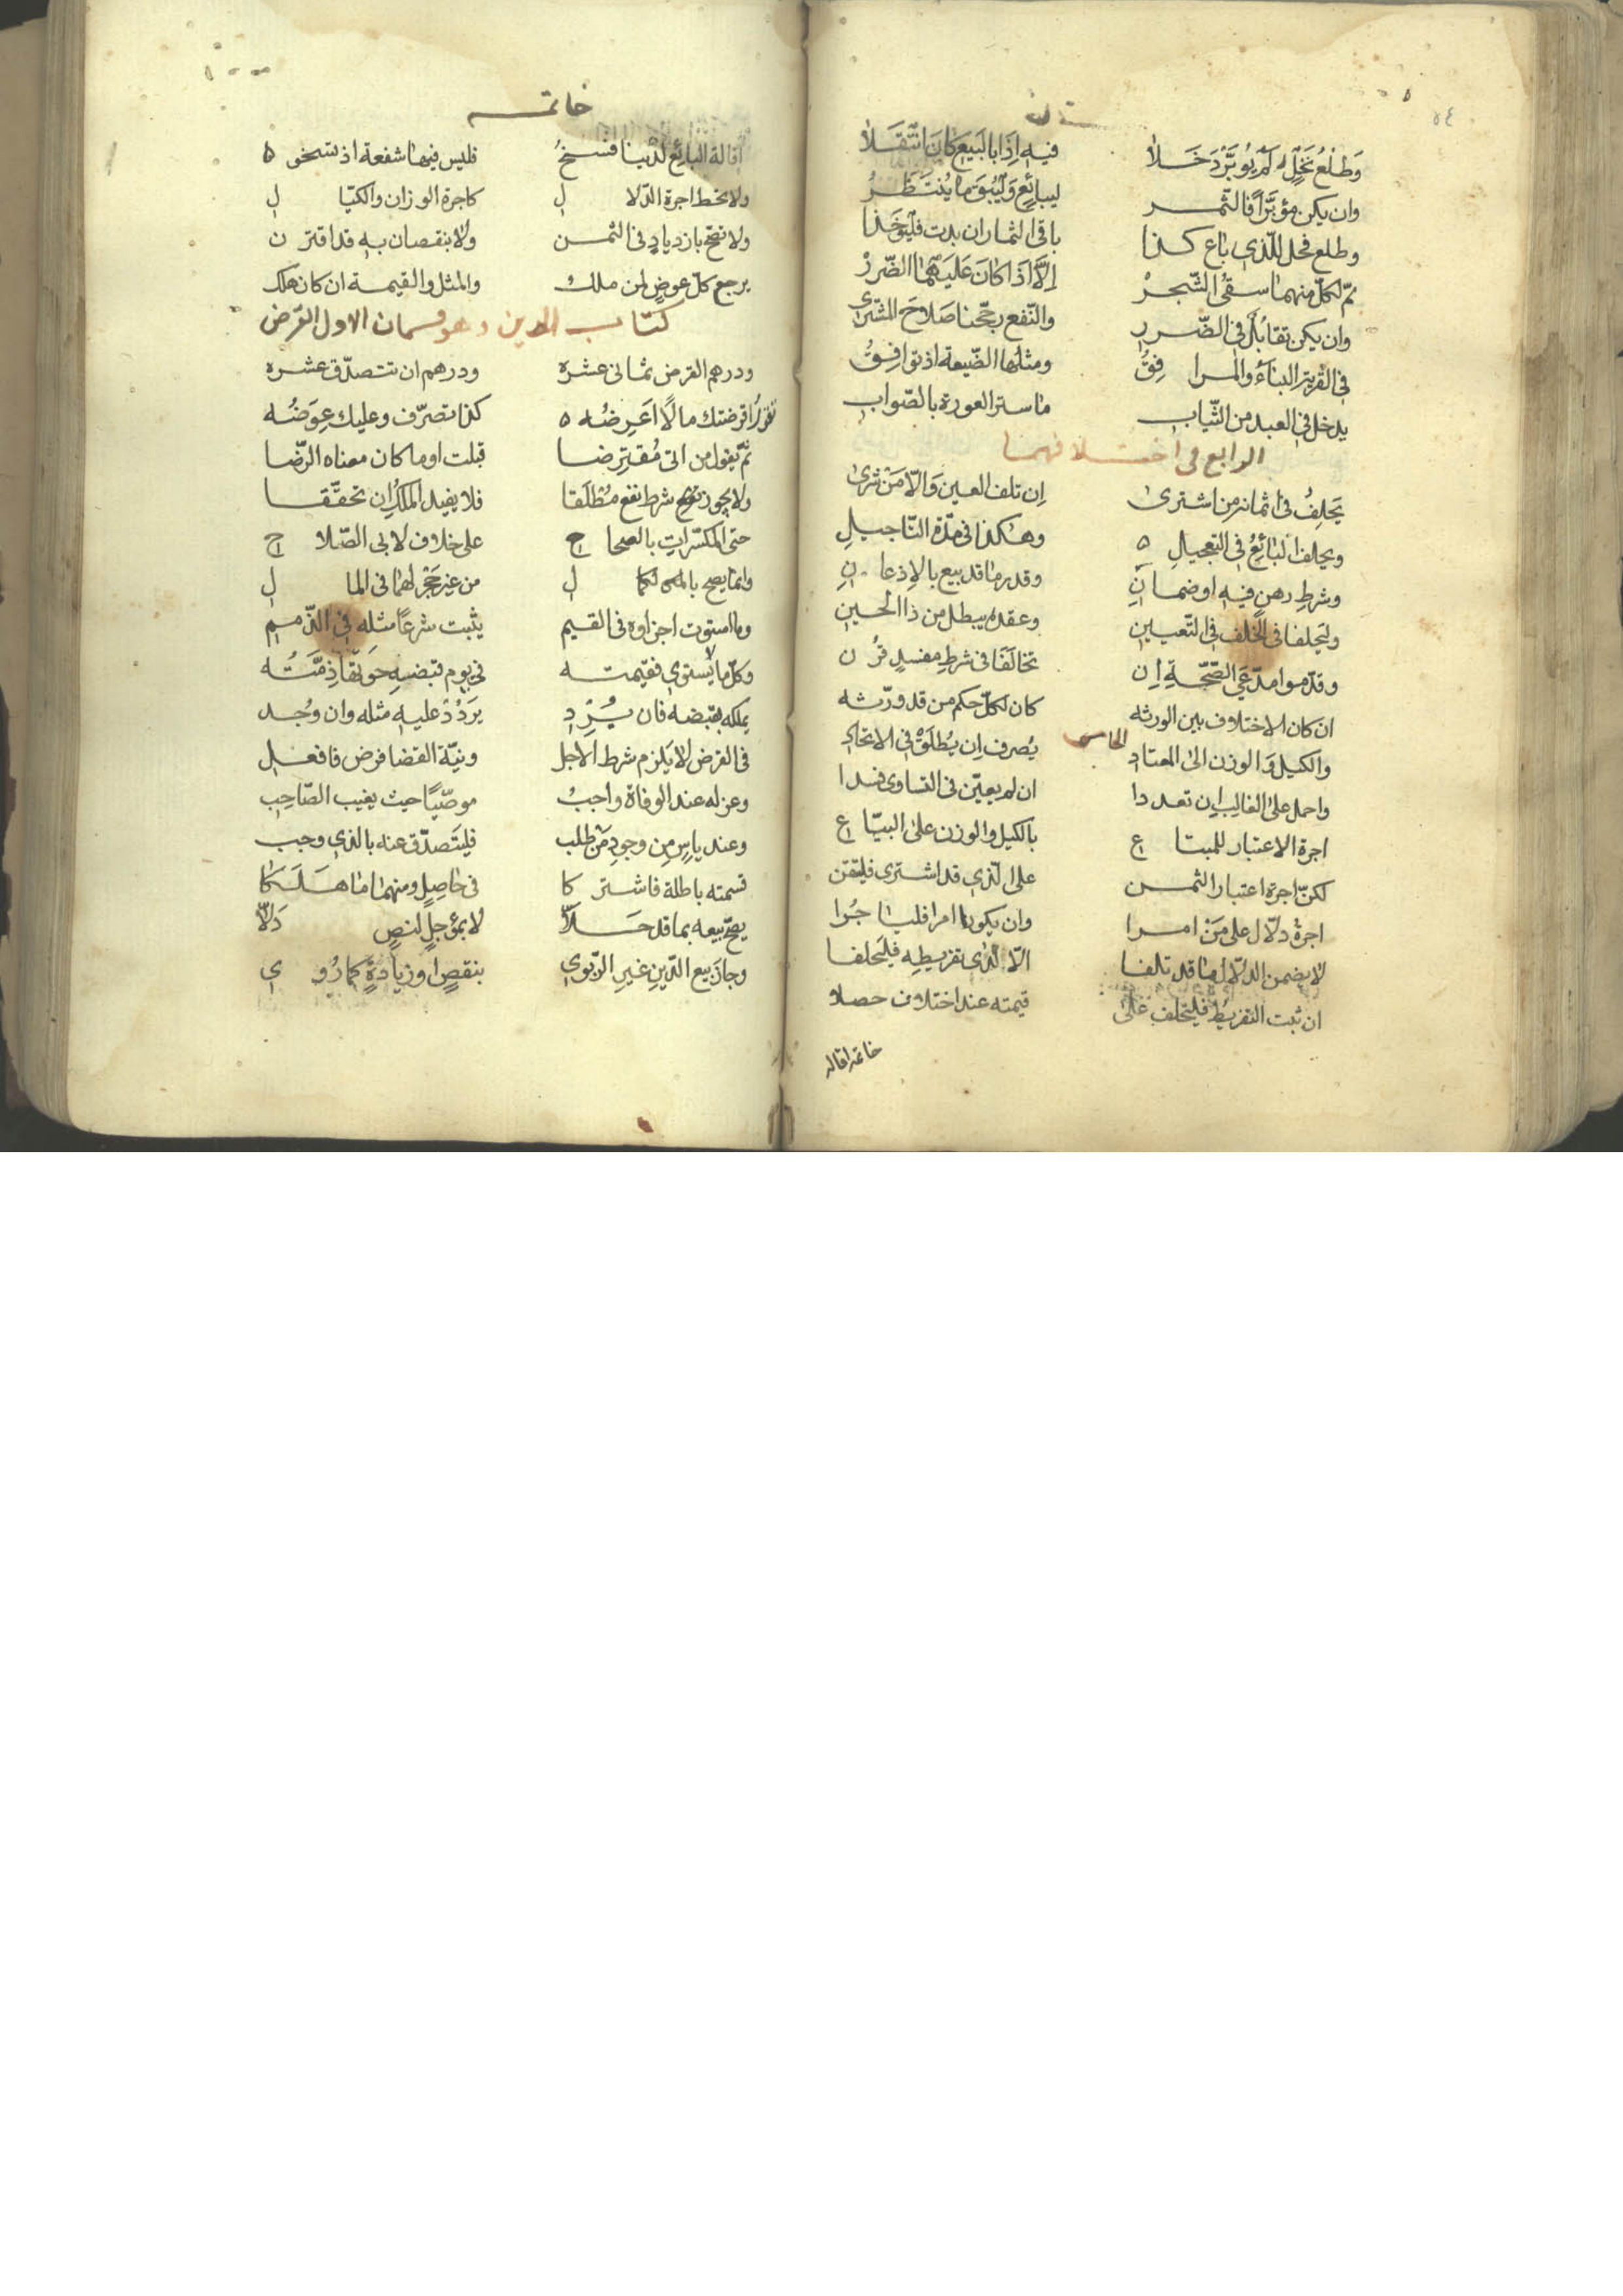 ٥٤
وَطَلْعُ نَخْلٍ لَمْ يُؤبَّرْ دَخَلَا فيه إِذَا بالبَيعِ كَانَ انتَقَلَا
وان يكن مؤبَّرًا فالثمر لبائعٍ وَلْيُبْقَ ما يُنتَظَرُ
وطلع فحل للّذي باع كذا باقي الثمار ان بدت فليؤخذا
ثمّ لكلّ منهما سقيُ الشّجرْ إلّا اذا كان عليهما الضّررْ
وان يكن تقابُلٌ في الضّررِ والنّفع رجّحنا صلاحَ المشتري
في القرية البناءُ والمرافِقُ ومثلها الضّيعة اذ توافِقُ
يدخل في العبد من الثّياب ما ستر العورة بالصّوابِ
الرابع في اختلافهما
يَحلِفُ في اثمانه من اشترى إن تلف العين وَالّا مَنْ شرى
ويحلف البَائعُ في التعجيلِ وهكذا في مدّة التّاجيلِ
وشرطِ رهنٍ فيه او ضمانِ وقدر ما قد بيع بالإذعانِ
وليحلفا في الخُلف في التّعيينِ وعقده يبطل من ذا الحينِ
وقدّموا مدّعيَ الصّحّةِ إن تخالفا في شرطِ مفسدٍ قُرن
ان كان الاختلاف بين الورثه كان لكلّ حكم من قد ورّثه
الخامس
والكيل وَالوزن الى المعتادِ يُصرف إن يُطلَقْ في الاتحادِ
واحمل على الغالب إن تعددا ان لم يعيّن في التساوي فسدا
اجرة الاعتبار للمبتاع بالكيل والوزن على البيّاع
لكنّ اجرة اعتبار الثمن على الّذي قد اشترى فليتقن
اجرةُ دلّال على مَنْ امرا وان يكونا امرا فليا جُرا
لا يضمن الدلّال ما قد تلفا الّا لدى تفريطِه فليَحلفا
ان ثبت التفريطُ فليحلف على قيمته عند اختلاف حصلا
خاتمه اقاله
خاتمه
اقالة البائع لدينا فسخُ فليس فيها شفعة اذ تنحو
ولا تحط اجرة الدّلال كاجرة الوزان والكيّال
ولا تصحّ بازديادٍ في الثمن ولا بنقصان بهِ قد اقترن
يرجع كلّ عوضٍ لمن ملك والمثل والقيمة ان كان هلك
كتاب الدين وهو قسمان الاول القرض
ودرهم القرض ثماني عشرة ودرهم ان تتصدّق عشره
تقولُ اقرضتك مالًا اعَرِضُه كذا تصرّف وعليك عِوَضُه
ثمّ يقول من اتى مُقترِضا قبلت او ما كان معناه الرضَا
ولا يجوز شرط نفع مُطْلَقا فلا يفيد الملكُ إن تحقّقا
حتى المكسّراتِ بالصحاح على خلاف لابي الصّلاح
وانما يصح بالكمال من غير حَجْر لهما في المال
وما استوت اجزاوه في القيم يثبت شرعًا مثله في الذّمم
وكلّ ما لا يستوي فقيمته في يوم قبضهِ حوتها ذِمَّتُه
يملكه بقبضه فان يُرِد يَردُدْ عليه مثله وان وُجد
في القرض لا يَلزم شرط الاجل ونيّة القضا فرض فافعل
وعزله عند الوفاة واجبُ موصّيًا حيث يغيب الصّاحِبُ
وعند ياسٍ مِن وجودِ مَن طلب فليَتصدّق عنه بالذي وجب
قسمته باطلة فاشتركا في حاصِلٍ ومنهما ما هَلَكا
يصحّ بيعه بما قد حَلّا لا بمؤجلٍ لنصٍ دَلّا
وجاز بيع الدّينِ غيرِ الرّبوي بنقصٍ او زيادةٍ كما رُوي